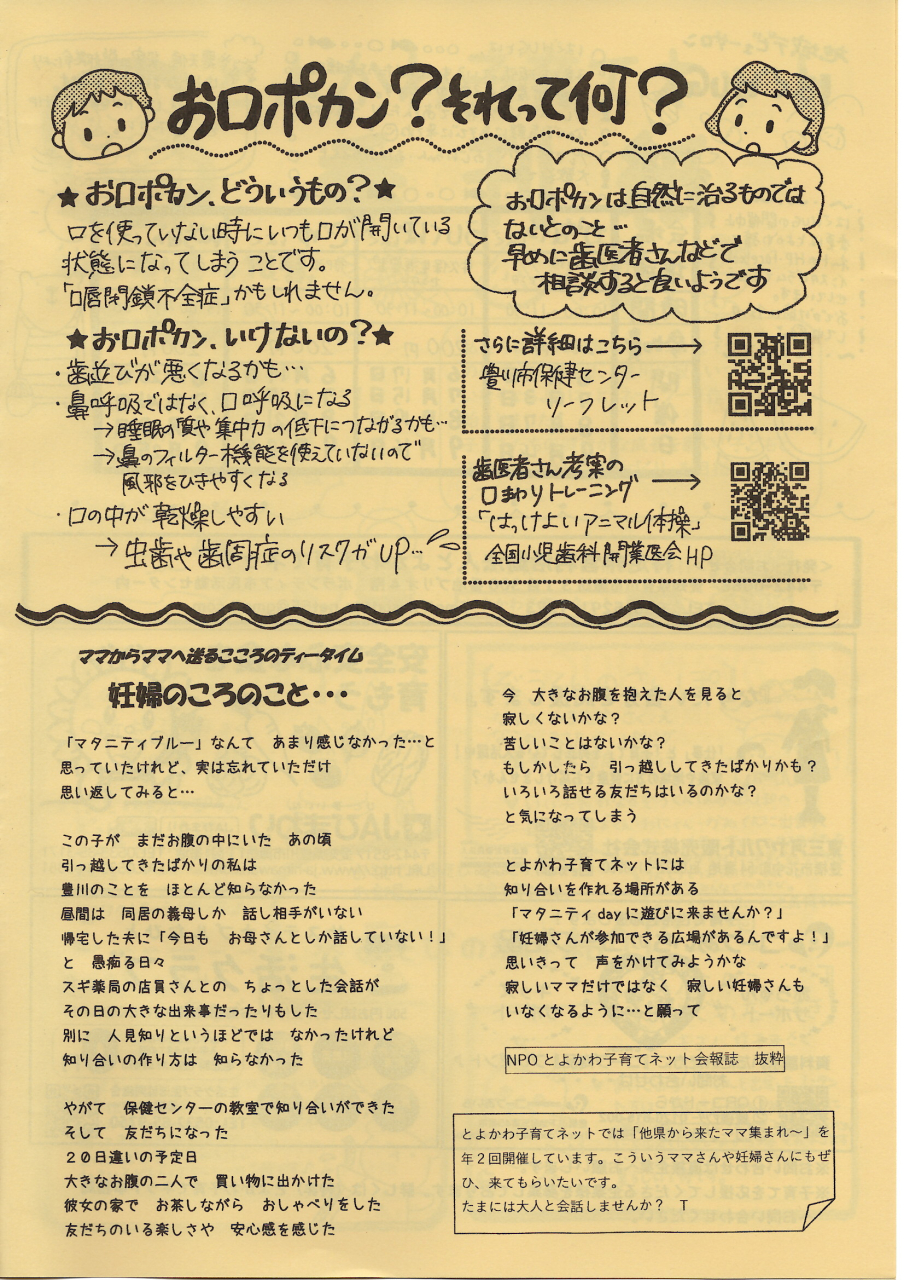 お口ポカン？それって何？
★お口ポカン、どういうもの？★
口を使っていない時にいつも口が開いている
状態になってしまうことです。
「口唇閉鎖不全症」かもしれません。
★お口ポカン、いけないの？★
・歯並びが悪くなるかも…
・鼻呼吸ではなく、口呼吸になる
→睡眠の質や集中力の低下につながるかも…
→鼻のフィルター機能を使えていないので
風邪をひきやすくなる
・口の中が乾燥しやすい
→虫歯や歯周症のリスクがUP…
お口ポカンは自然に治るものでは
ないとのこと…
早めに歯医者さんなどで
相談すると良いようです
さらに詳細はこちら→
豊川市保健センター
リーフレット
歯医者さん考案の
口まわりトレーニング →
「はっけよいアニマル体操」
全国小児歯科開業医会HP
ママからママへ送るこころのティータイム
妊婦のころのこと・・・
「マタニティブルー」なんて　あまり感じなかった…と
思っていたけれど、実は忘れていただけ
思い返してみると…
この子が　まだお腹の中にいた　あの頃
引っ越してきたばかりの私は
豊川のことを　ほとんど知らなかった
昼間は　同居の義母しか　話し相手がいない
帰宅した夫に「今日も　お母さんとしか話していない！」
と　愚痴る日々
スギ薬局の店員さんとの　ちょっとした会話が
その日の大きな出来事だったりもした
別に　人見知りというほどでは　なかったけれど
知り合いの作り方は　知らなかった
やがて　保健センターの教室で知り合いができた
そして　友だちになった
２０日違いの予定日
大きなお腹の二人で　買い物に出かけた
彼女の家で　お茶しながら　おしゃべりをした
友だちのいる楽しさや　安心感を感じた
今　大きなお腹を抱えた人を見ると
寂しくないかな？
苦しいことはないかな？
もしかしたら　引っ越ししてきたばかりかも？
いろいろ話せる友だちはいるのかな？
と気になってしまう
とよかわ子育てネットには
知り合いを作れる場所がある
「マタニティdayに遊びに来ませんか？」
「妊婦さんが参加できる広場があるんですよ！」
思いきって　声をかけてみようかな
寂しいママだけではなく　寂しい妊婦さんも
いなくなるように…と願って
NPOとよかわ子育てネット会報誌　抜粋
とよかわ子育てネットでは「他県から来たママ集まれ～」を
年２回開催しています。こういうママさんや妊婦さんにもぜ
ひ、来てもらいたいです。
たまには大人と会話しませんか？　T